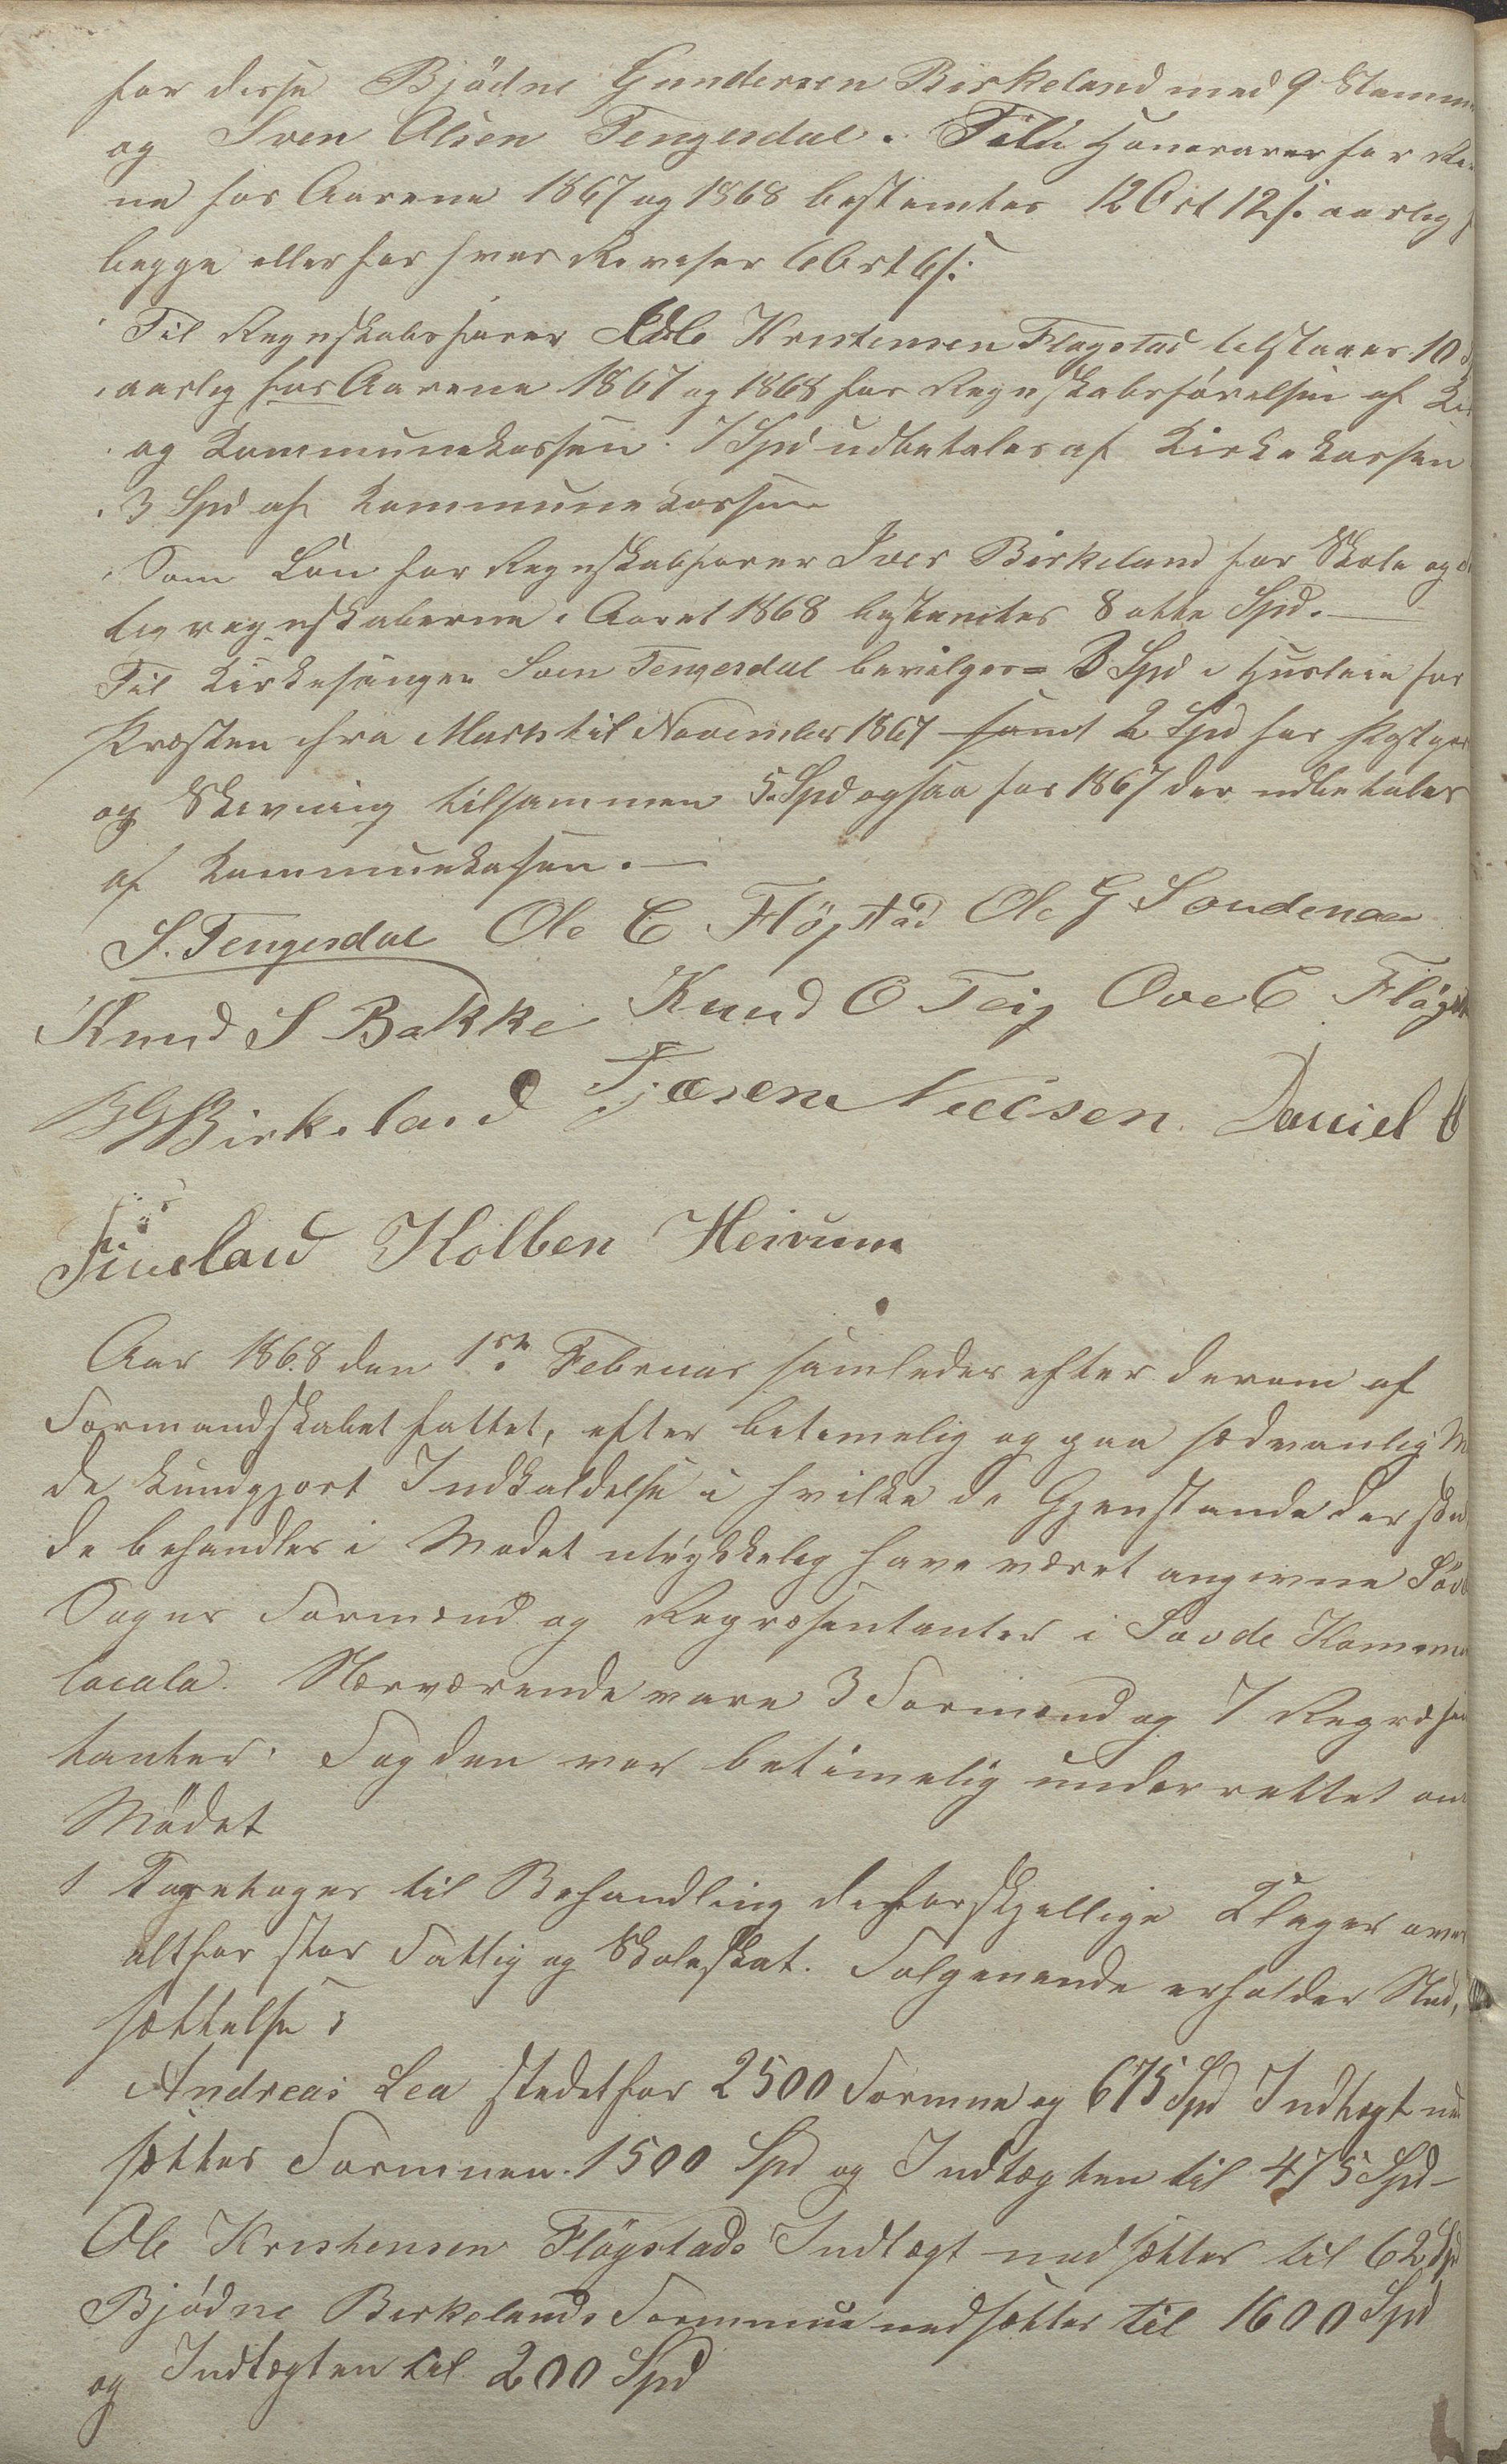 for disse Bjödne Gundersen Birkeland med 9 Stemm
og Sven Olsen Tengesdal. Honorarer for Re
ne for Aarene 1867 og 1868 bestemtes 12 Ort 12 s. aarlig f
begge eller for hver Revisor 6 Ort 6 s.
Til Regnskabsfører Kristensen Fløgstad tilstaaes 10
aarlig for Aarene 1867 og 1868 for Regnskabsförelsen af Ki
og Kommunekassen. 7 Spd udbetales af Kirkekassen
3 Spd af Kommunekassen
Som Lön for Regnskabsfører Iver Birkeland for Skole og
tigregnskaberne i Aaret 1868 bestemtes 8 otte Spd.
Til Kirkesanger Sven Tengesdal bevilges 3 Spd i Husleie for
Præsten fra Marts til November 1867 samt 2 Spd for
og Skrivning tilsammen 5 Spd ogsaa for 1867 der udbetales
af Kommunekassen.
S. Tengesdal Ole C Fløgstad Ole G Soudenaa
Knud S Bakke Knud O Teig Ove C Fløgst
BG Birkeland Tjæren Nielsen Daniel
Fiveland Kolben Heivum
Aar 1868 den 1ste Februar samledes efter derom af
Formandskabet fattet, efter betimelig og paa sedvanlig M
de kundgjort Indkaldelse i hvilke de Gjenstande der skul
de behandles i Mødet utrykkelig have været angivne Söv
Sogns Formænd og Repræsentanter i Sovde Kommu
locale. Nærværende vare 3 Formænd og 7 Repræsen
tanter. Fogden var betimelig underrettet om
Mödet
1 Foretoges til Behandling de forskjellige Klager over
altfor stor Fattig og Skoleskat. Følgenende erholder Ned,
sættelse:
Andreas Lea stedetfor 2500 Formue og 675 Spd Indtægt ned
sættes Formuen 1500 Spd og Indtægten til 475 Spd
Ole Kristensen Flögstads Indtægt nedsættes til 62 Spd
Bjødne Birkelands Formue nedsættes til 1600 Spd
og Indtægten til 200 Spd